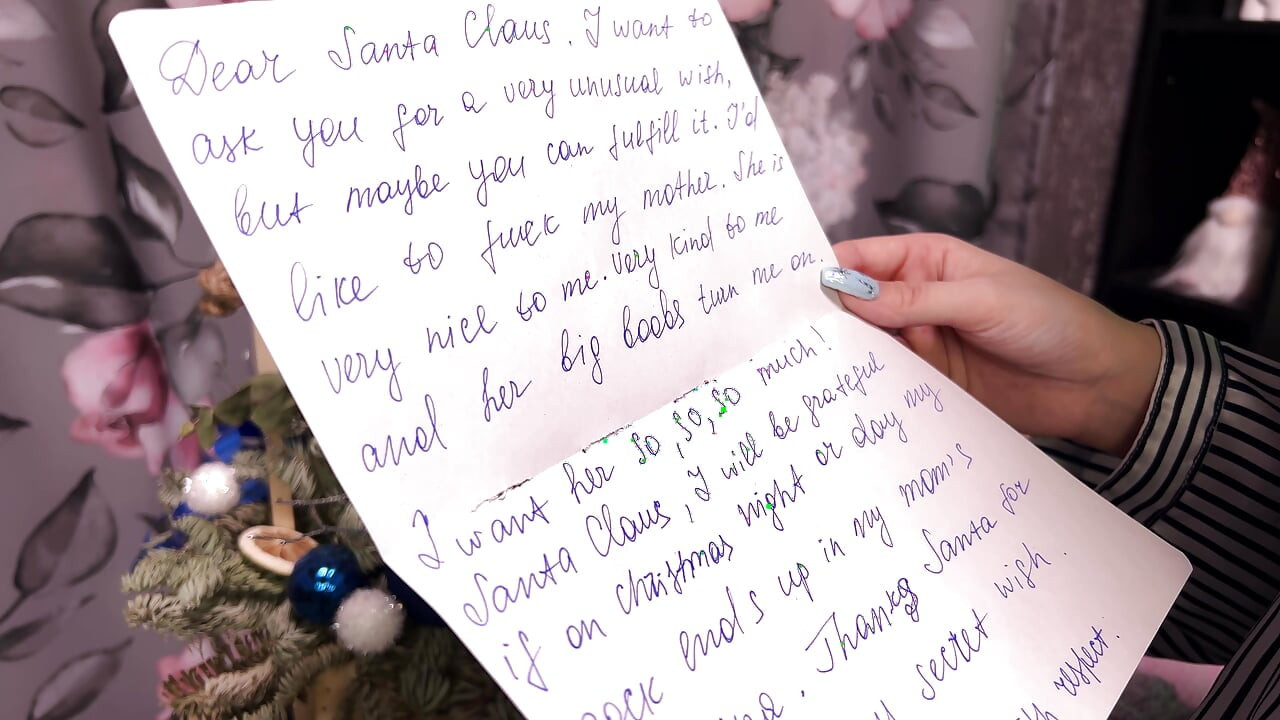 Dear Santa Claus. I want to
ask you for a very unusual wish,
but maybe you can fulfill it. I'd
like to fuck my mother. She is
very nice to me. Very kind to me
and her big boobs turn me on.
I want her so, so, so much!
Santa Claus, I will be grateful
if on christmas night or day my
cock ends up in my mom's
Thanks Santa for
secret wish.
respect.